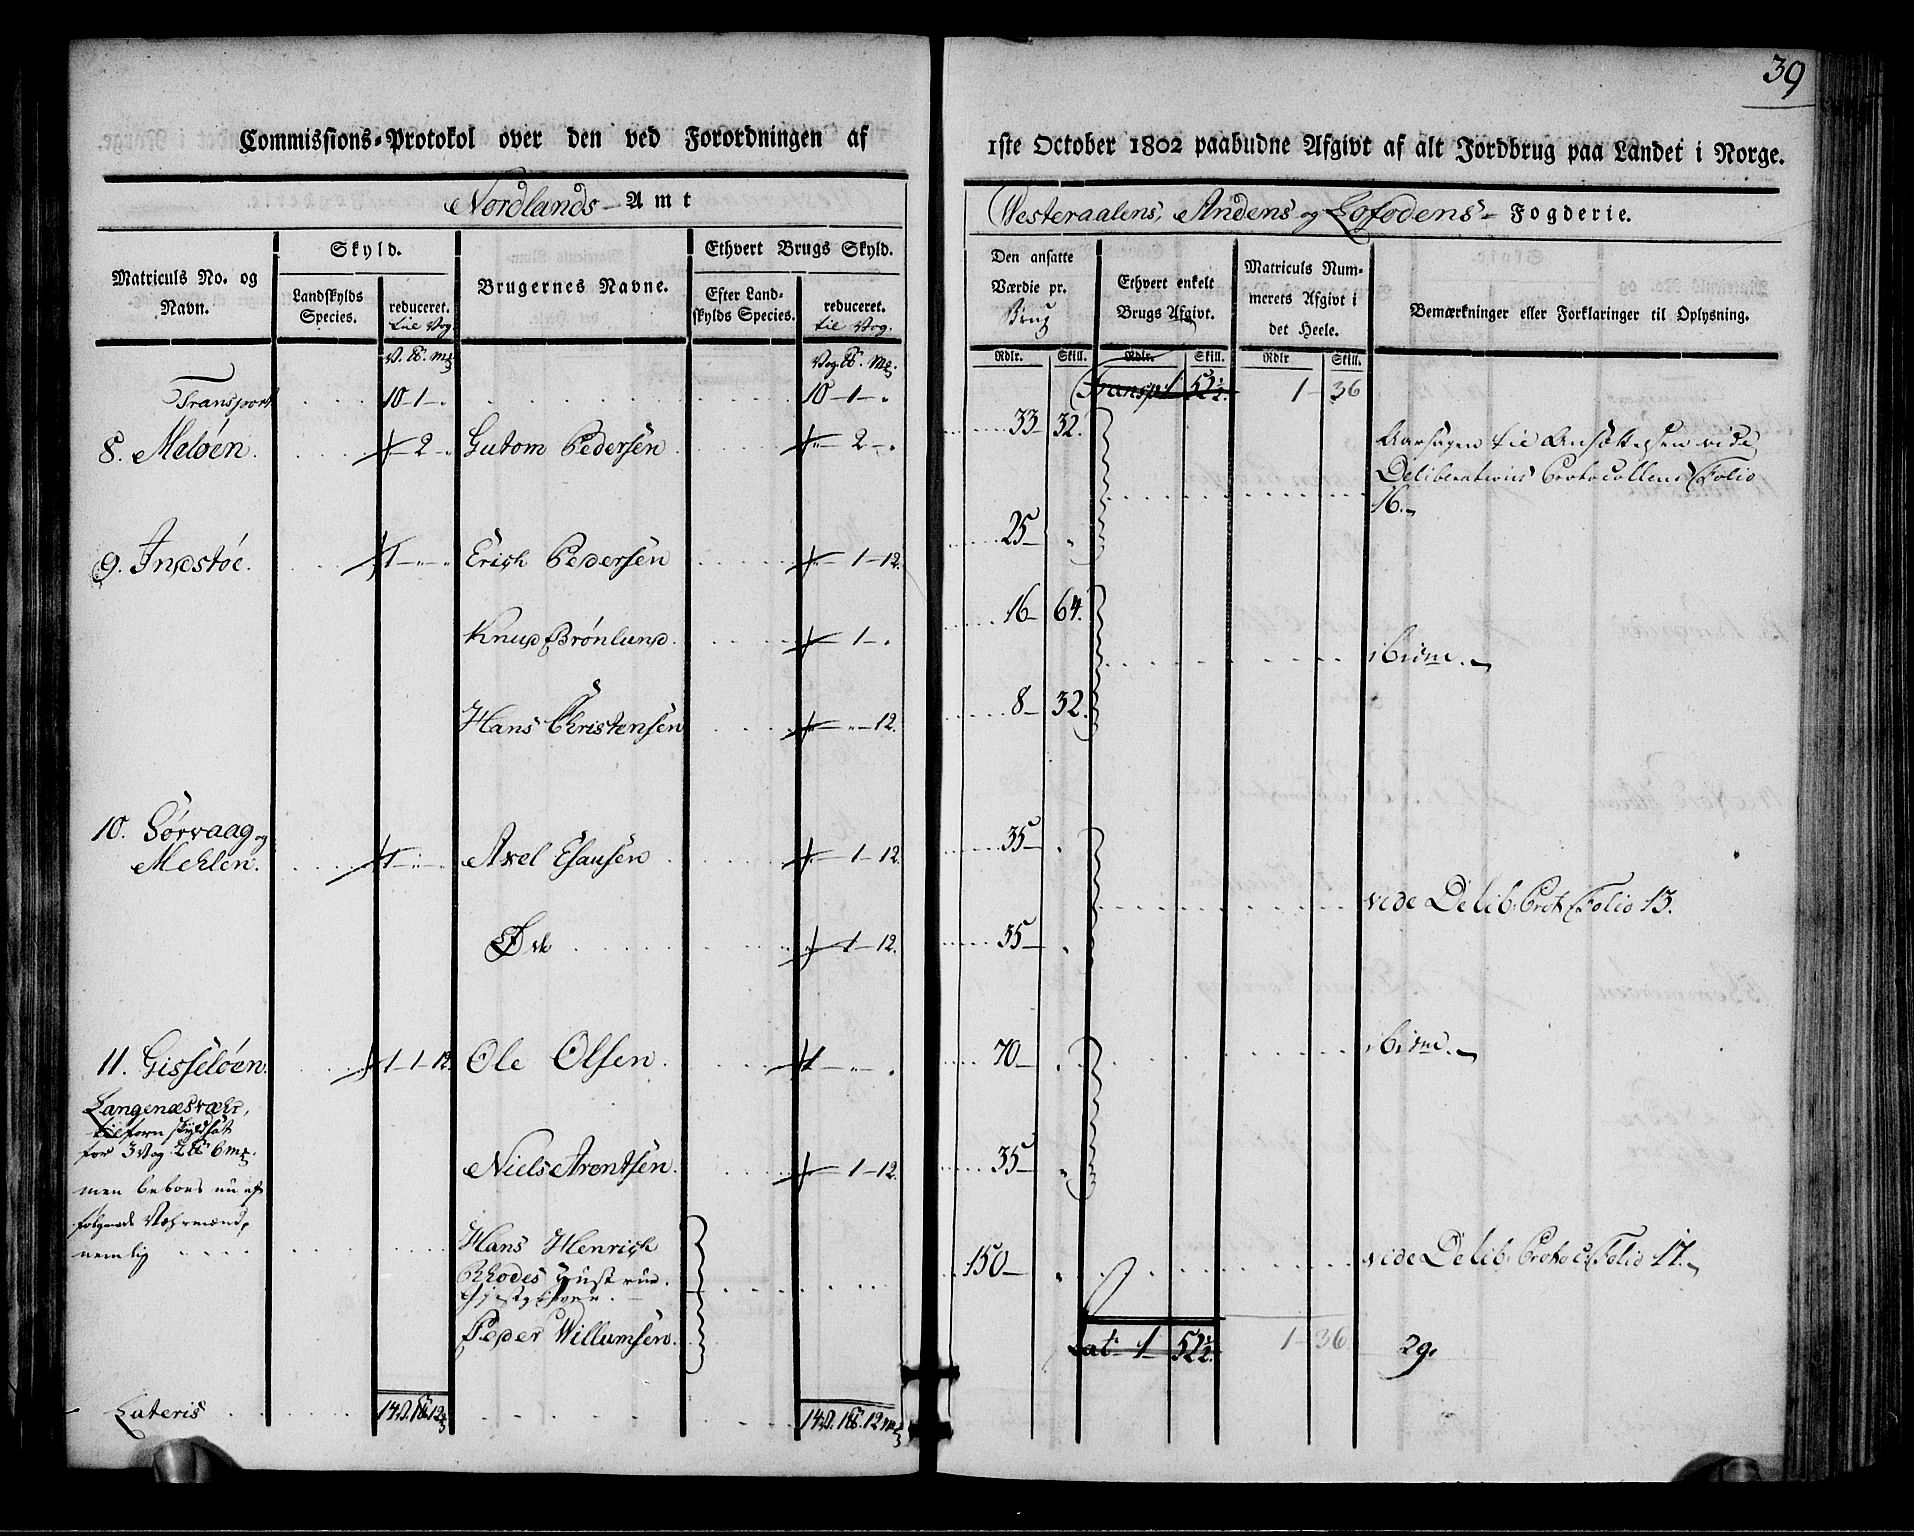 39
Commissions-Protokol over den ved Forordningen af
1ste October 1802 paabudne Afgivt af alt Jordbrug paa Landet i Norge.
Nordlands Amt
Westeraalens, Andens og Lofodens Fogderie.
Matriculs No. og Navn.
Skyld.
Landskylds Species.
reduceret. til Vog
Brugernes Navne.
Ethvert Brugs Skyld.
Efter Landskylds Species.
reduceret. til Vog.
Den ansatte Værdie pr. Brug
Ethvert enkelt Brugs Afgivt.
Matriculs Nummerets Afgivt i det Heele.
Bemærkninger eller Forklaringer til Oplysning.
Rdlr. Skill. Rdlr. Skill. Rdlr Skill.
Transport 10-1-" 10-1-" Transp: 1 52½. 1-36
8. Meløen. 2-" Gutom Pedersen 2-" 33-32.
Aarsagen til Ansættelsen vide
Deliberations Protocollens Folio
16.
9. Indstøe. 1-"-" Erich Pedersen 1-12. 25-"
Knud Brönlund. 1-" 16-64. ibidm.
Hans Christensen "-12. 8-32.
10. Sørvaag og
Mehlen. 1-"-" Axel Esausen 1-12. 35-"
vide Delib: Prot. Folio 13.
Øde 1-12. 35-"
11. Gisseløen. 1-1-12. Ole Olsen. 1-"-" 70-" ibidm.
Langenæsvæhr,
tilforn skyldsat
for 3 Vog 2 ℔ 6 mk.
Niels Arentsen. 1-12. 35-"
men beboes nu af
følgende Væhrmænd,
nemlig
Hans Henrich
Rhodes Hustrue.
Peder Willumsen.
150-"
vide Delib: Protoc: Folio 17.
Lat. 1-52½. 1-36 29.
Lateris 14 V. 1 ℔. 12 mk 14 V. 1 ℔. 12 mk